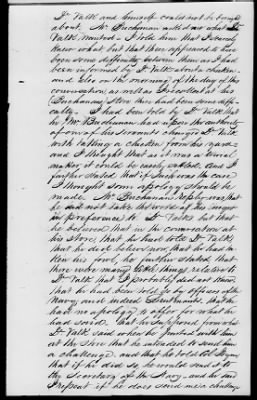 Dr Valk and himself could not be brought
about. Mr Buchanan asked me what Dr
Valk wanted. I told him that I scarcely
knew what but that there appeared to have
been some difficulty between them as I had
been informed by Dr Valk about a chicken
and also on the morning of the day of the
conversation as well as I recollect at his
(Buchanans) Store there had been some diffi-
culty. I had been told by Dr Valk that
he (Mr Buchanan) had upon the authority
of one of his servants charged Dr Valk
with taking a chicken from his yard
and I thought that as it was a trivial
matter, it could be easily settled, and I
further stated, that if such was the case
I thought some apology should be
made. Mr Buchanan replied that
he did not take the word of the negro
in preference to Dr Valks but that
he believed that in the conversation at
his Store, that he had told Dr Valk
that he did believe now that he had ta-
ken his fowl, he further stated that
there were many little things relative to
Dr Valk that I probably did not know
that he had been told by officers of the
Navy, and indeed Lieutenants, that he
had no apology to offer for what he
had said. That he supposed from what
Dr Valk said when he parted with him
at the Store that he intended to send him
a challenge, and that he told
that if he did so, he would send it to
the Secretary of the Navy, and he said
I repeat if he does send me a challenge